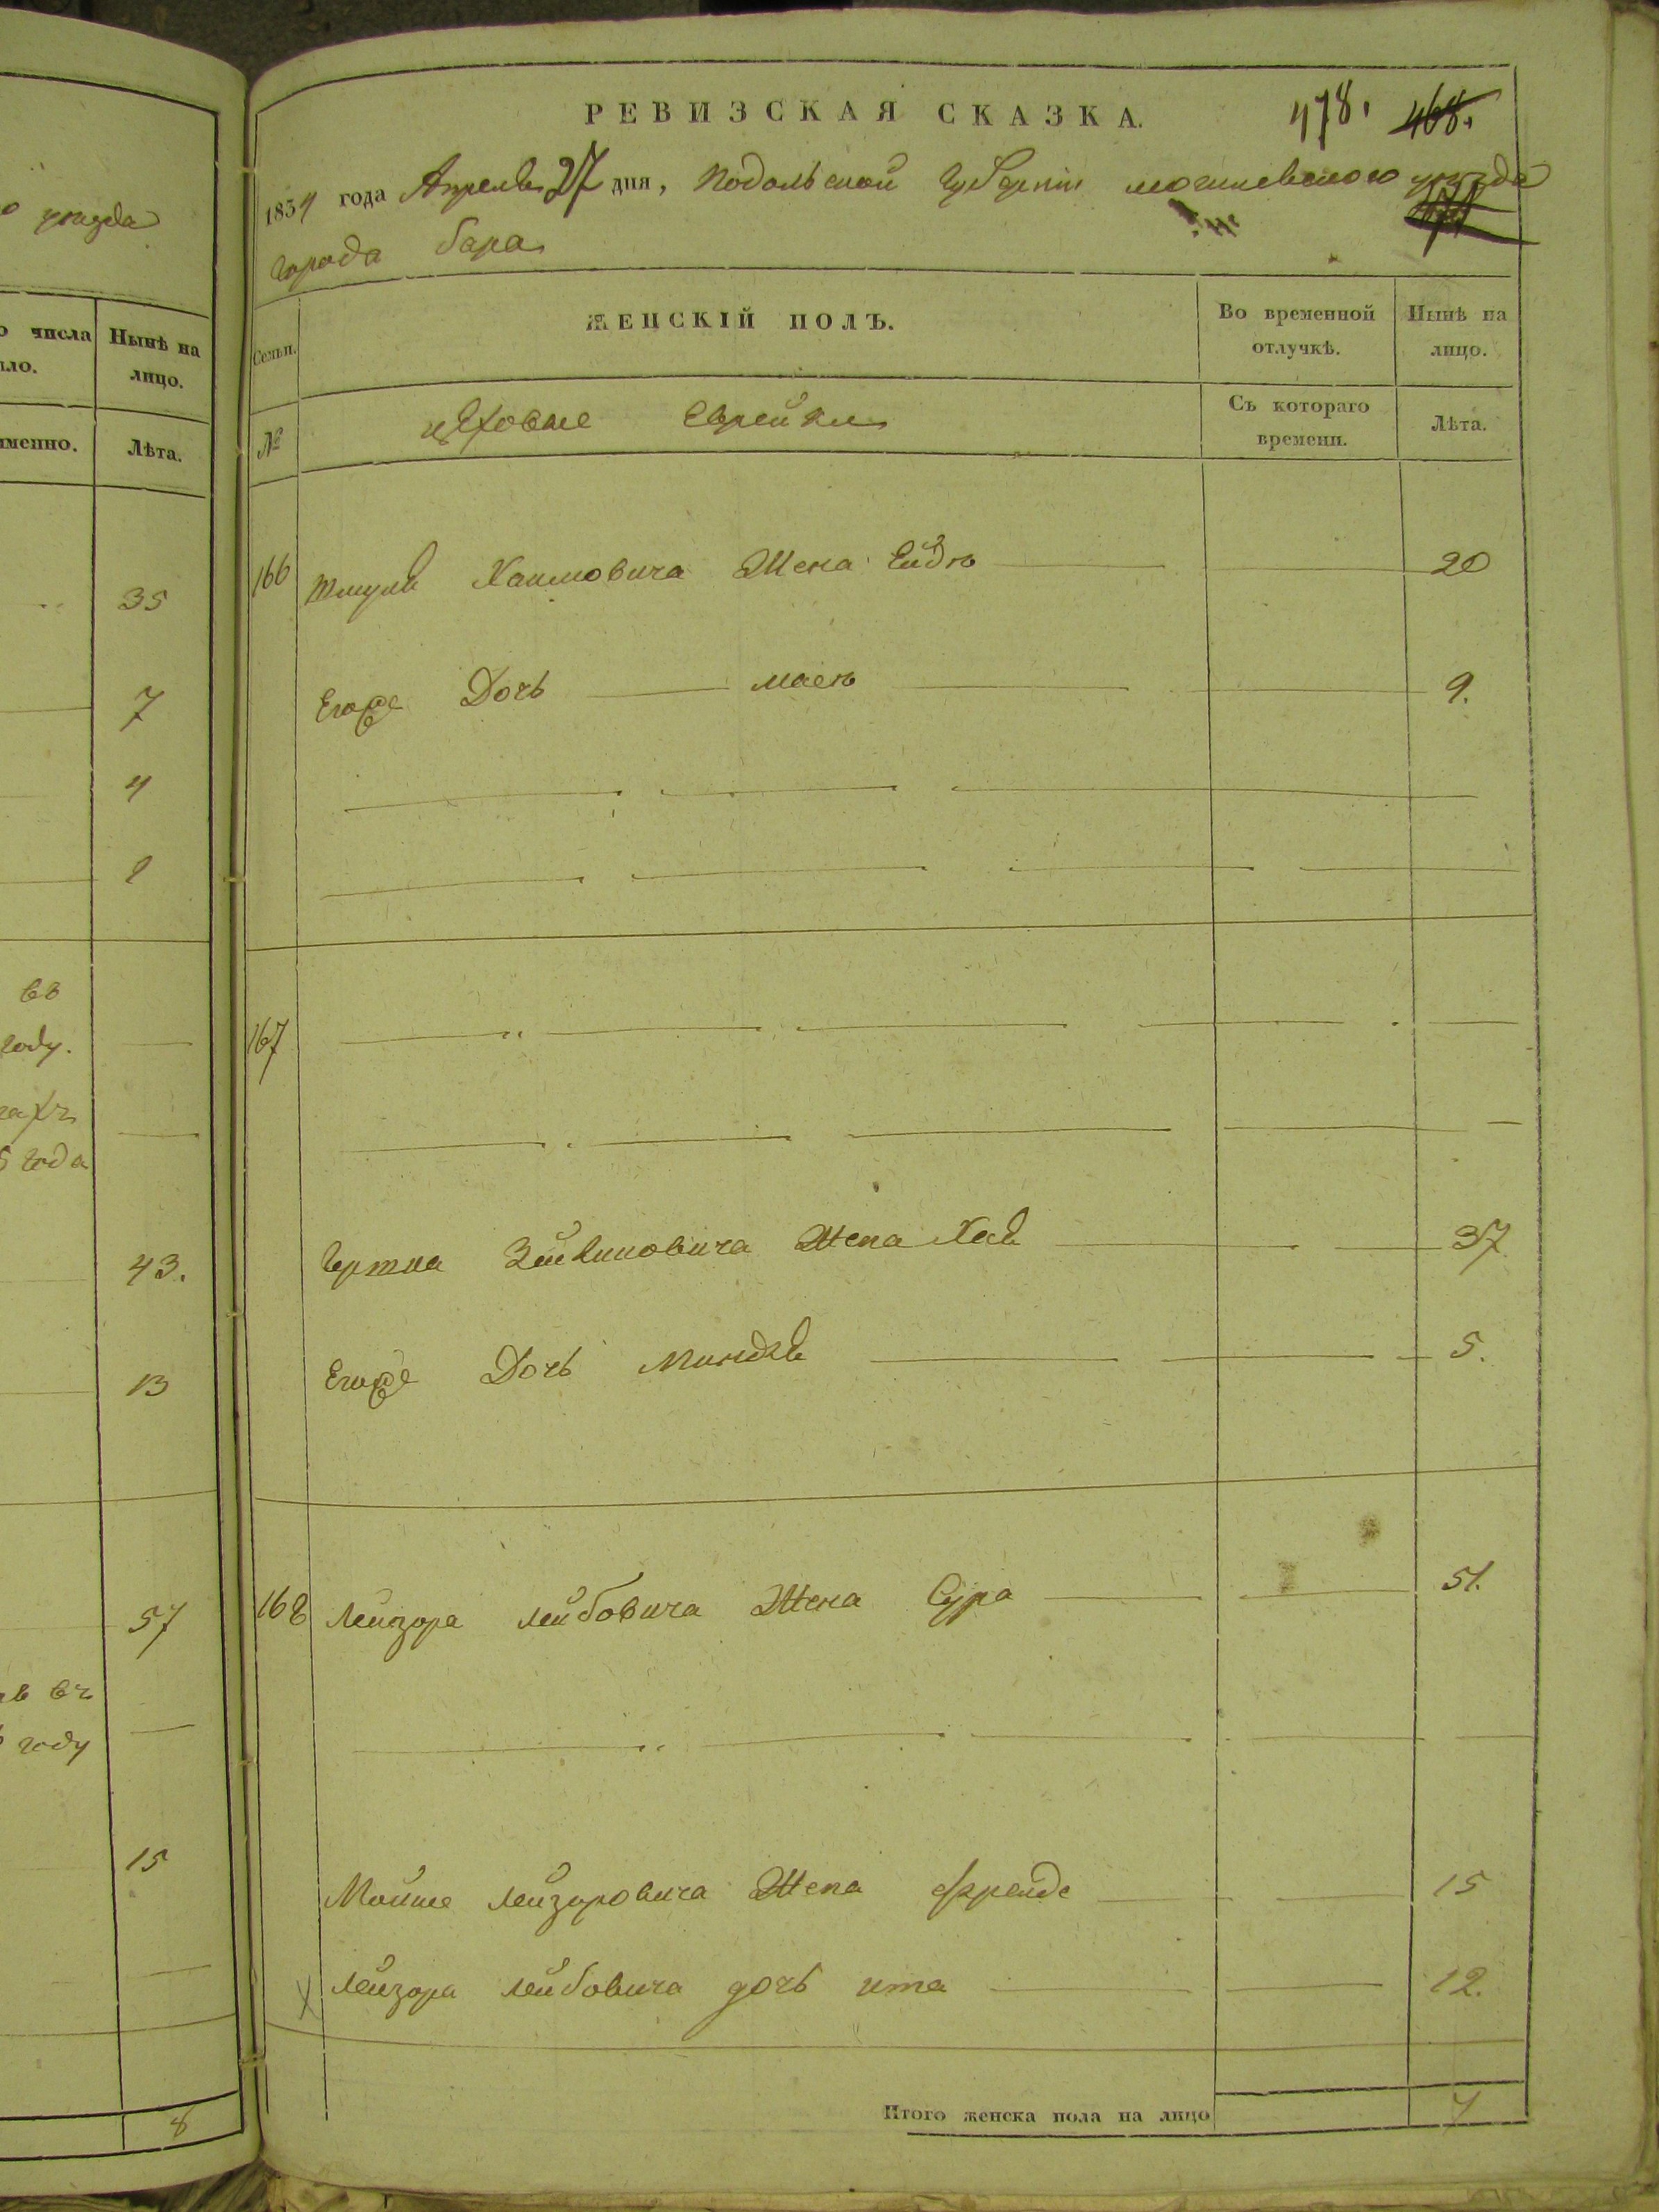 о уѣзда
о числа
ыло.
Нынѣ на
лицо.
именно.
Лѣта.
35
7
4
1
въ
году.
году
43.
13
57
въ
году
15
8
РЕВИЗСКАЯ СКАЗКА.
478. 468.
1834 года Апреля 27 дня, Подольской Губерніи могилевского уѣзда
города Бара
Семьи.
ЖЕНСКІЙ ПОЛЪ.
Во временной
отлучкѣ.
Нынѣ на
лицо.
№
цѣховые Еврейки
Съ котораго
времени.
Лѣта.
166 Шмуля Хаимовича Жена Ейдя 20
Егоже Дочь 9.
167
Зейликовича Жена Хая 37
Егоже Дочь Миндля 5.
168 Лейзора лейбовича Жена Сура 51.
Мойше лейзоровича Жена фрейде 15
х Лейзора лейбовича дочь ита 12.
Итого женска пола на лицо 7